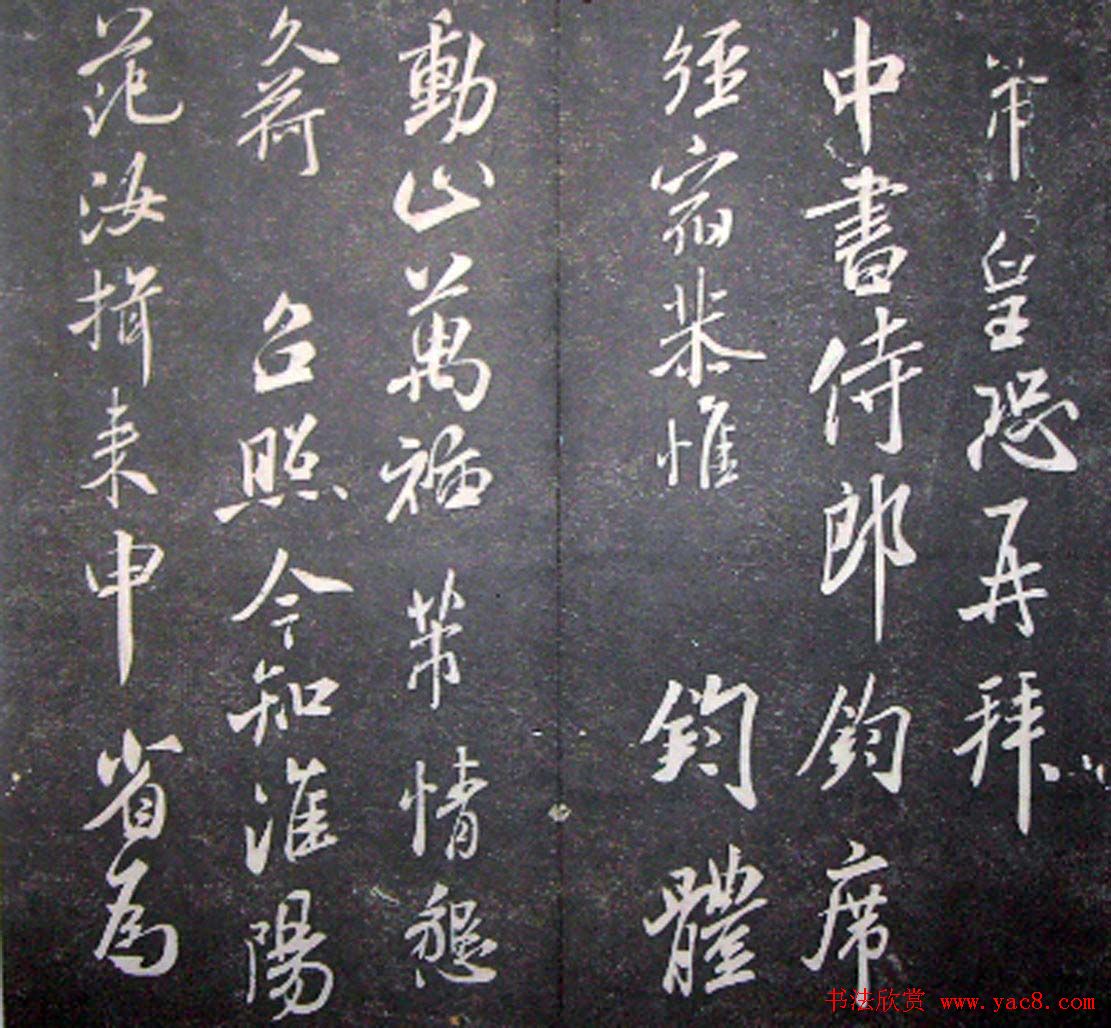 芾皇恐再拜
中書侍郎鈞席
經宿恭惟 鈞體
動止萬福 芾情懇
久荷 台照今知淮陽
范汝揖來申省為
书法欣赏 www.yac8.com